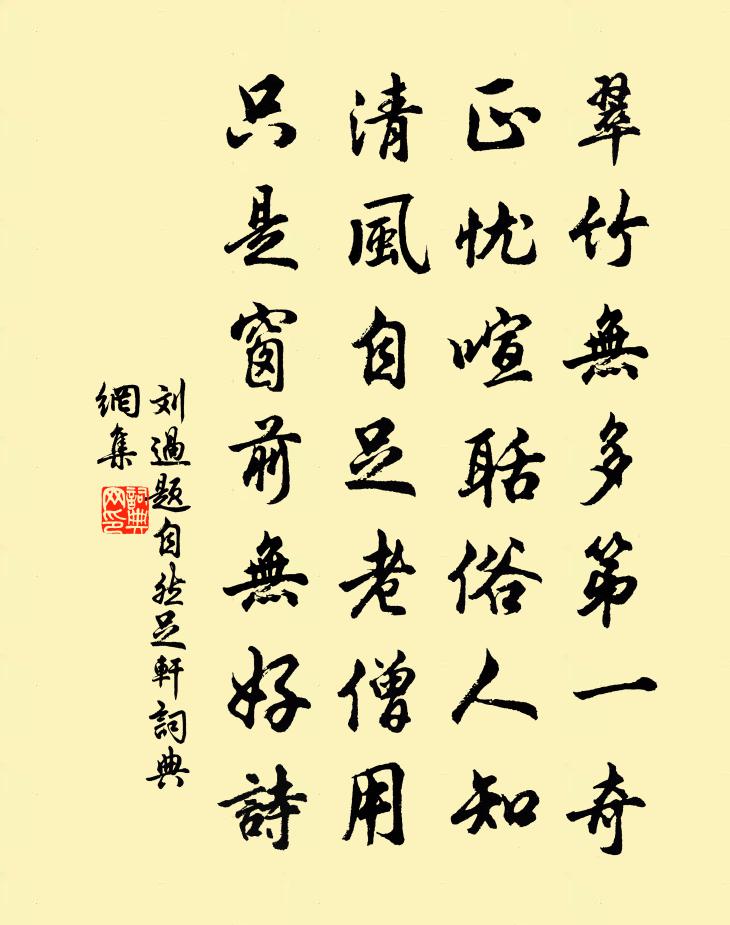 翠竹無多第一奇
正忧喧聒俗人知
清風自足老僧用
只是窗前無好詩
刘過题自然足軒詞典
網集
詞典网印